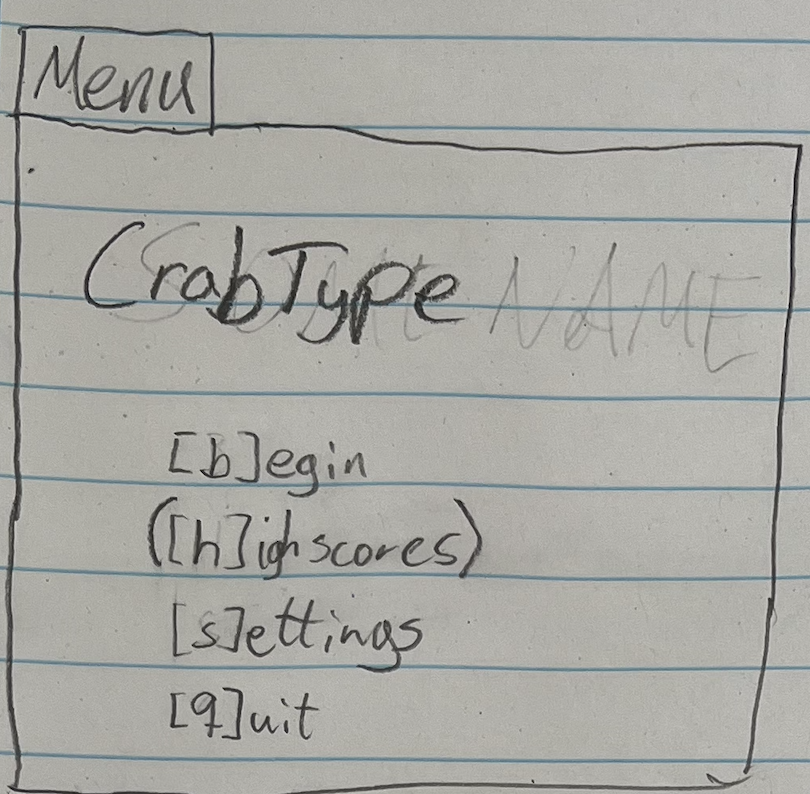 Menu
CrabType NAME
[b]egin
([h]ighscores)
[s]ettings
[q]uit